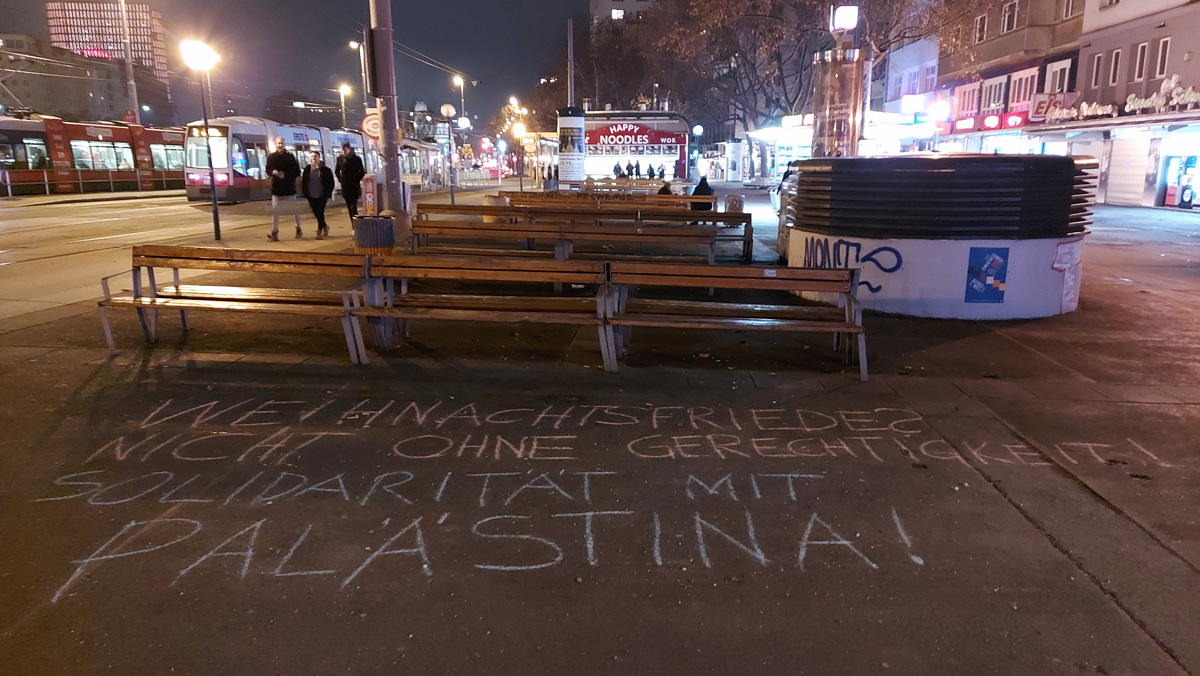 HAPPY
NOODLES WOK
MONET
WEIHNACHTSFRIEDE?
NICHT OHNE GERECHTIGKEIT!
SOLIDARITÄT MIT
PALÄSTINA!